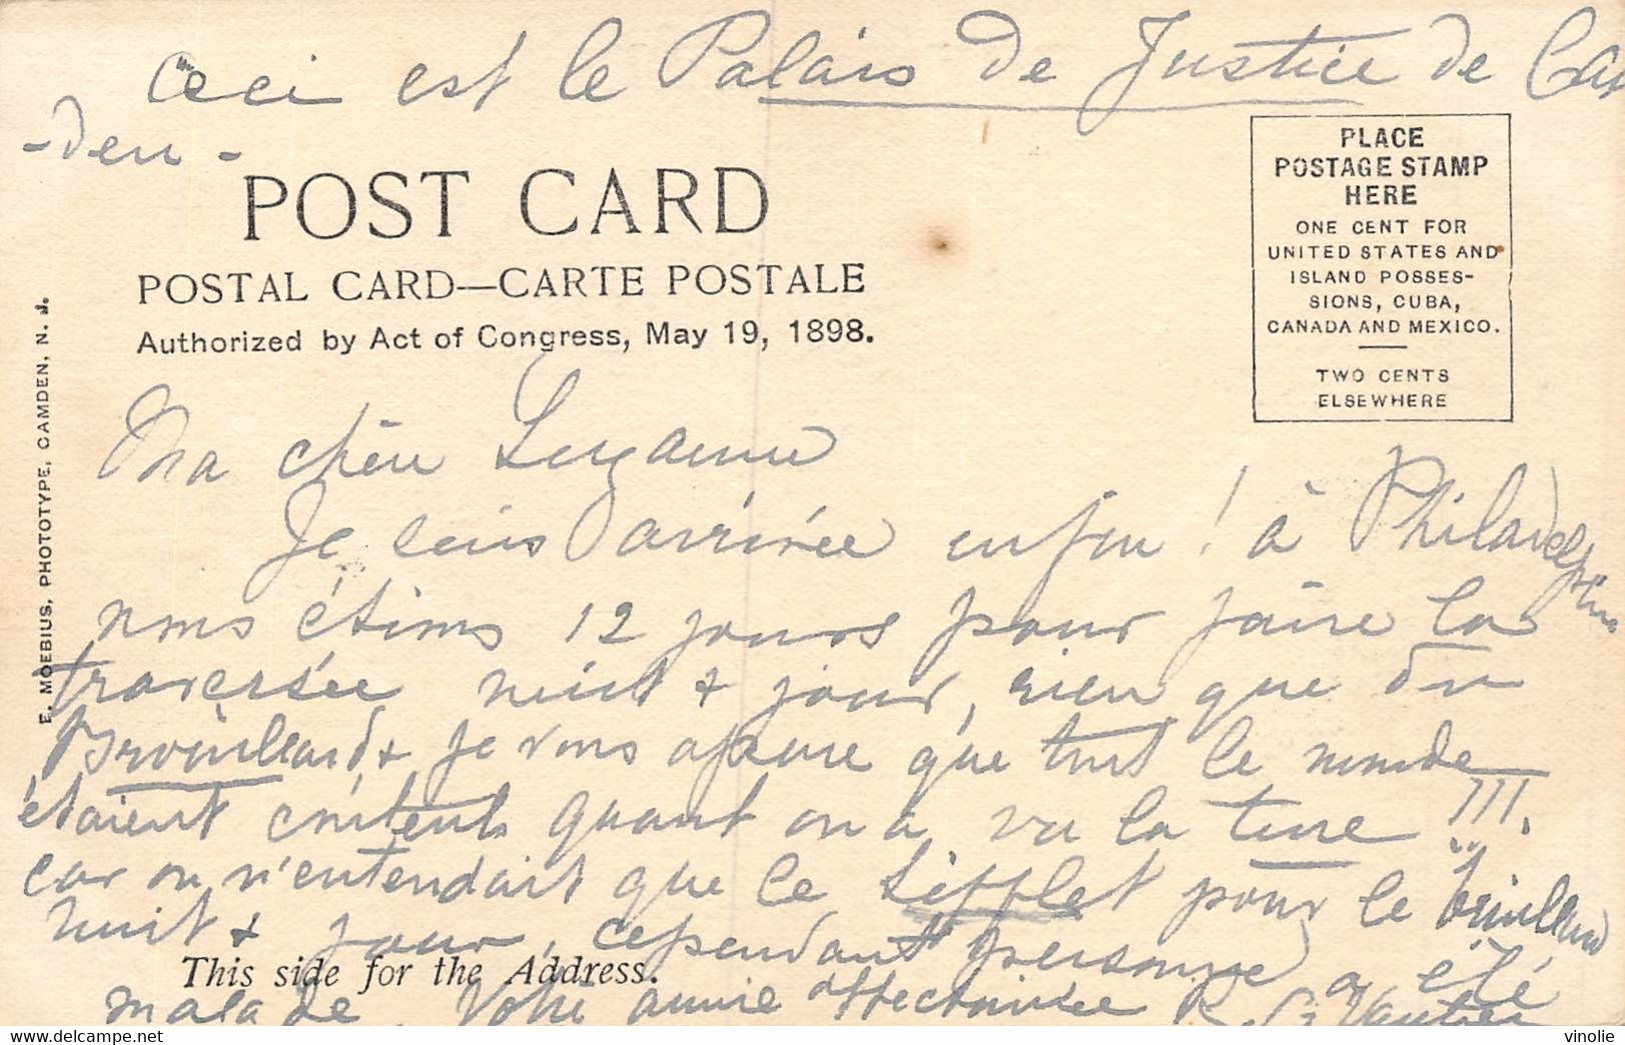 ceci est le Palais de Justice de Cam
-den-
POST CARD
POSTAL CARD—CARTE POSTALE
Authorized by Act of Congress, May 19, 1898.
PLACE
POSTAGE STAMP
HERE
ONE CENT FOR
UNITED STATES AND
ISLAND POSSES-
SIONS, CUBA,
CANADA AND MEXICO.
TWO CENTS
ELSEWHERE
E. MOEBIUS, PHOTOTYPE, CAMDEN, N. J.
Ma chère Suzanne
Je suis arrivée enfin ! à Philadelphie
nous étions 12 jours pour faire la
traversée nuit & jour, rien que du
Brouillard & je vous assure que tout le monde
étaient contents quant on a vu la terre !!!.
car on n'entendait que le sifflet pour le brouillard
nuit & jour, cependant personne a été
This side for the Address.
malade. Votre amie affectionnée
vinolie